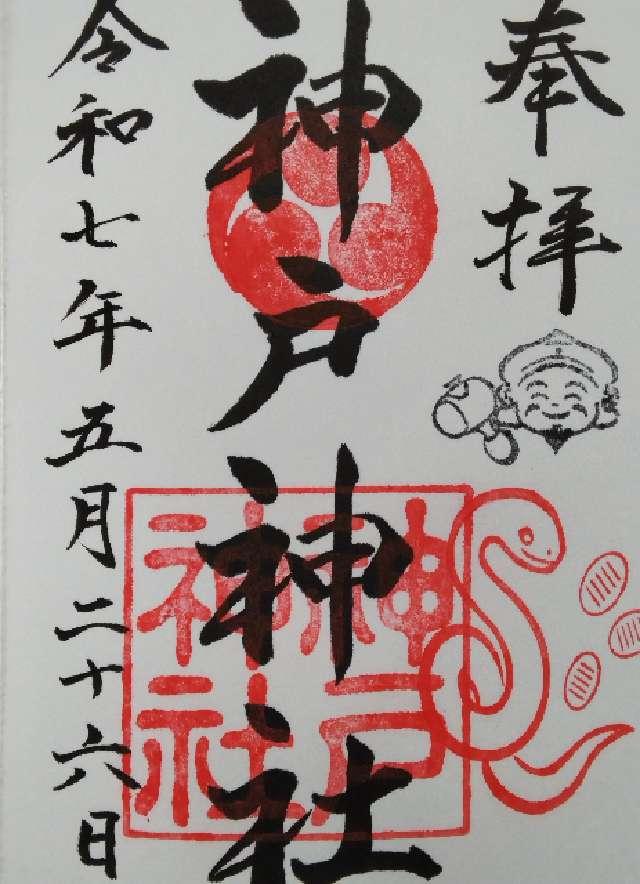 奉拝
神戸神社
神戸神社
令和七年五月二十六日